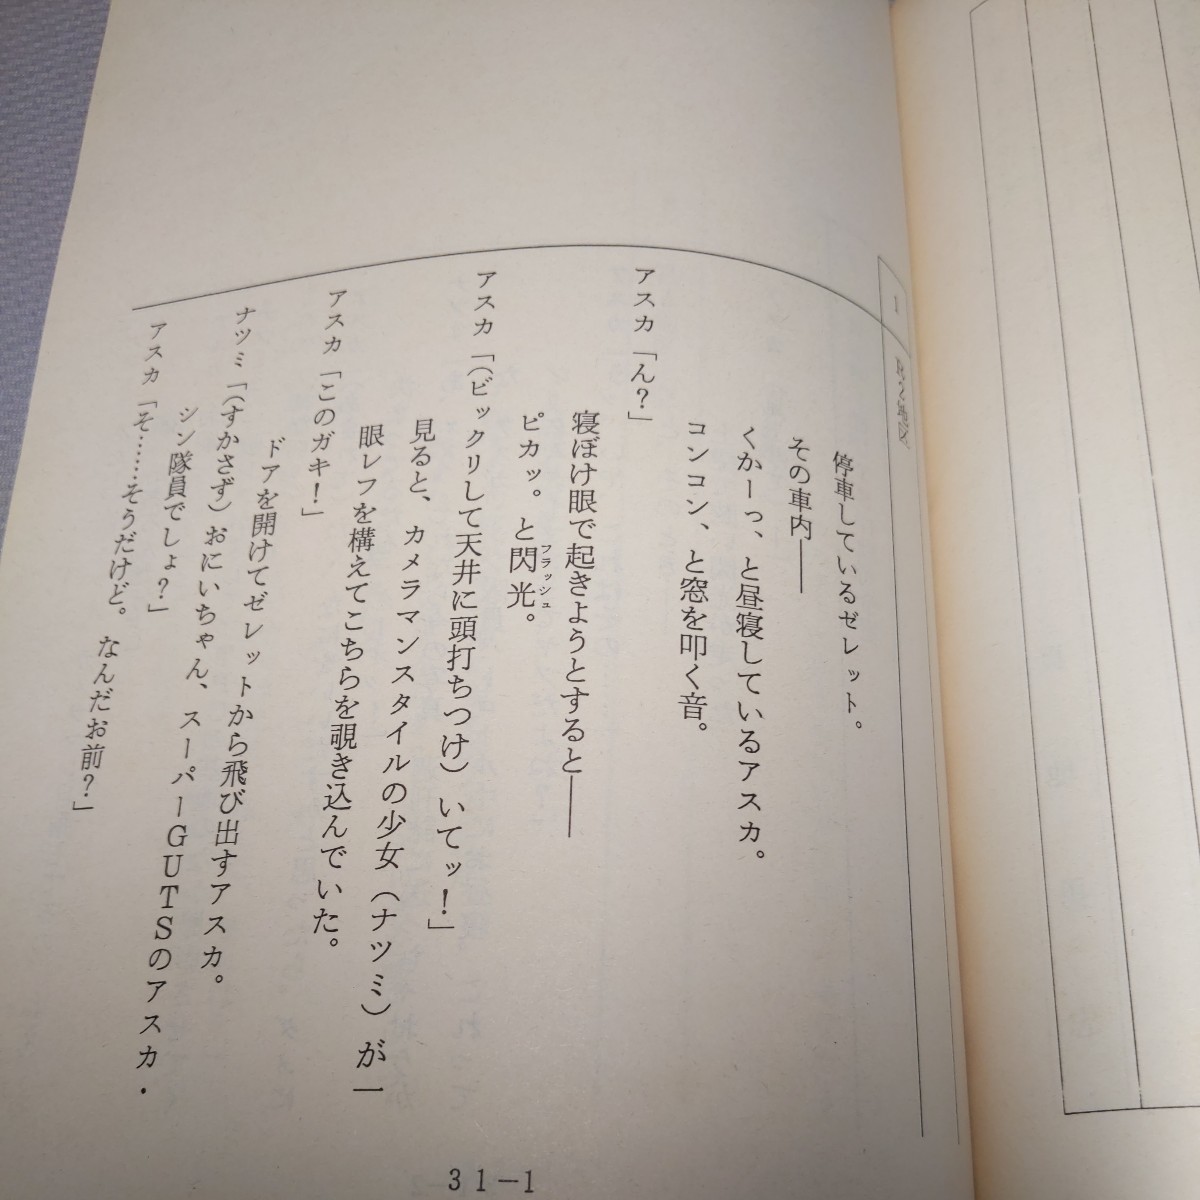 1
停車しているゼレット。
その車内――
くかーっ、と昼寝しているアスカ。
コンコン、と窓を叩く音。
アスカ「ん？」
寝ぼけ眼で起きようとすると――
ピカッ。と閃光。
フラッシュ
アスカ「（ビックリして天井に頭打ちつけ）いてッ！」
見ると、カメラマンスタイルの少女（ナツミ）が一
眼レフを構えてこちらを覗き込んでいた。
アスカ「このガキ！」
ドアを開けてゼレットから飛び出すアスカ。
ナツミ「（すかさず）おにいちゃん、スーパーGUTSのアスカ・
シン隊員でしょ？」
アスカ「そ……そうだけど。なんだお前？」
31－1